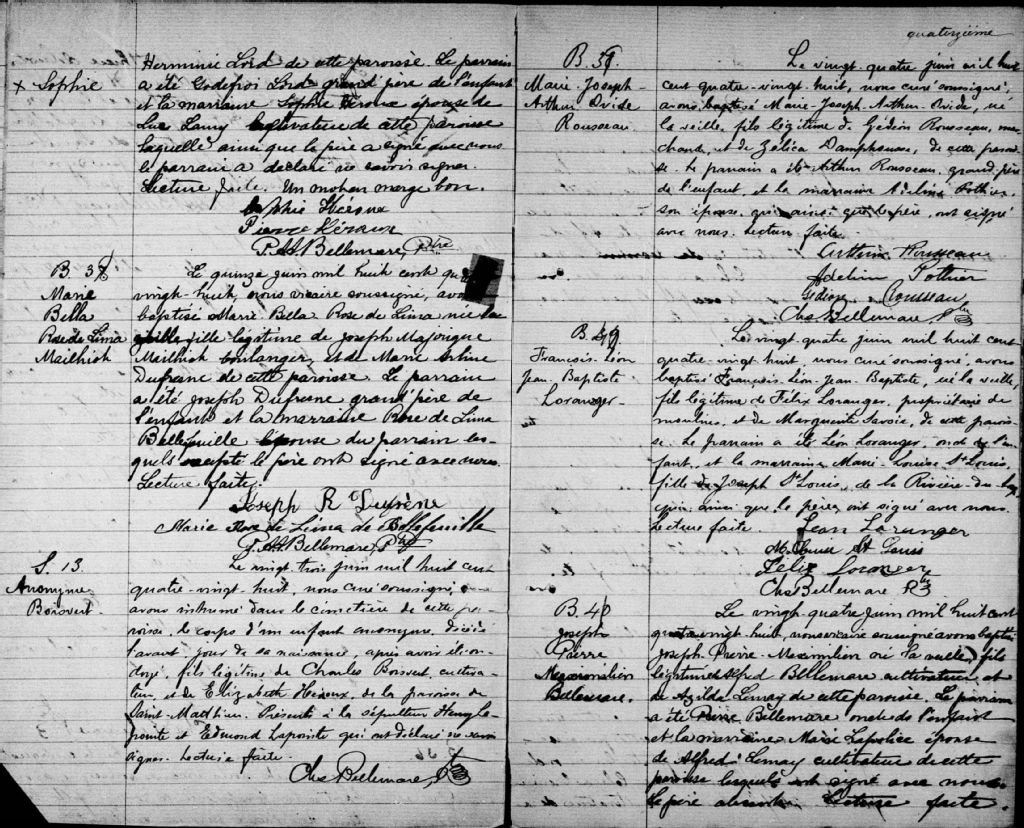 Herminie Lord de cette paroisse. Le parrain
+ Sophie
a été Godefroi Lord grand père de l'enfant
et la marraine Sophie Héroux épouse de
Luc Lamy cultivateur de cette paroisse
laquelle ainsi que le père a signé avec nous
le parrain a déclaré ne savoir signer.
Lecture faite. Un mot en marge bon.
Sophie Héroux
Pierre Héroux
P. H. Bellemare, Ptre
B 38
Marie
Bella
Rose de Lima
Mailhiot
Le quinze juin mil huit cent
vingt-huit, nous vicaire soussigné, avons
baptisé Marie Bella Rose de Lima née la
veille, fille légitime de Joseph Majorique
Mailhiot boulanger, et de Marie
Dufresne de cette paroisse. Le parrain
a été Joseph Dufresne grand'père de
l'enfant et la marraine Rose de Lima
Bellefeuille épouse du parrain les-
quels excepté le père ont signé avec nous.
Lecture faite.
Joseph R Dufrène
Marie Rose de Lima de Bellefeuille
P. H. Bellemare, Ptre
S. 13
Anonyme
Boisvert
Le vingt-trois juin mil huit cent
quatre-vingt-huit, nous curé soussigné,
avons inhumé dans le cimetière de cette pa-
roisse, le corps d'un enfant anonyme, décédé
l'avant jour de sa naissance, après avoir été on-
doyé, fils légitime de Charles Boisvert, cultiva-
teur, et de Elizabeth Héroux, de la paroisse de
Saint-Mathieu. Présents à la sépulture Henry La-
pointe et Edmond Lapointe qui ont déclaré ne savoir
signer. Lecture faite.
Chs Bellemare, Ptre
quatorzième
B. 38
Marie-Joseph-
Arthur Ovide
Rousseau
Le vingt-quatre juin mil huit
cent quatre-vingt-huit, nous curé soussigné,
avons baptisé Marie-Joseph-Arthur-Ovide, né
la veille, fils légitime de Gédéon Rousseau, mar-
chand, et de Zélica Damphousse, de cette parois-
se. Le parrain a été Arthur Rousseau, grand-père
de l'enfant, et la marraine Adeline Pothier,
son épouse, qui ainsi que le père, ont signé
avec nous. Lecture faite.
Arthur Rousseau
Adeline Pothier
Gédéon Rousseau
Chs Bellemare Ptre
B. 39
François-Léon
Jean-Baptiste
Loranger
Le vingt quatre juin mil huit cent
quatre-vingt huit nous curé soussigné, avons
baptisé François-Léon-Jean-Baptiste, né la veille,
fils légitime de Félix Loranger, propriétaire de
moulins, et de Marguerite Savoie, de cette parois-
se. Le parrain a été Léon Loranger, oncle de l'en-
fant, et la marraine Marie-Louise St Louis,
fille de Joseph St Louis, de la Rivière-du-Lou
qui, ainsi que le père, ont signé avec nous.
Lecture faite.
Léan Loranger
M. Louise St Louis
Felix Loranger
Chs Bellemare Ptre
B. 40
Joseph
Pierre
Maximilien
Bellemare.
Le vingt-quatre juin mil huit cent
quatre vingt huit, nous vicaire soussigné avons baptisé
Joseph-Pierre-Maximilien né la veille, fils
légitime d'Alfred Bellemare cultivateur, et
de Azilda Lemay de cette paroisse. Le parrain
a été Pierre Bellemare oncle de l'enfant
et la marraine Marie épouse
de Alfred Lemay cultivateur de cette
paroisse lesquels ont signé avec nous
le père absent. Lecture faite.